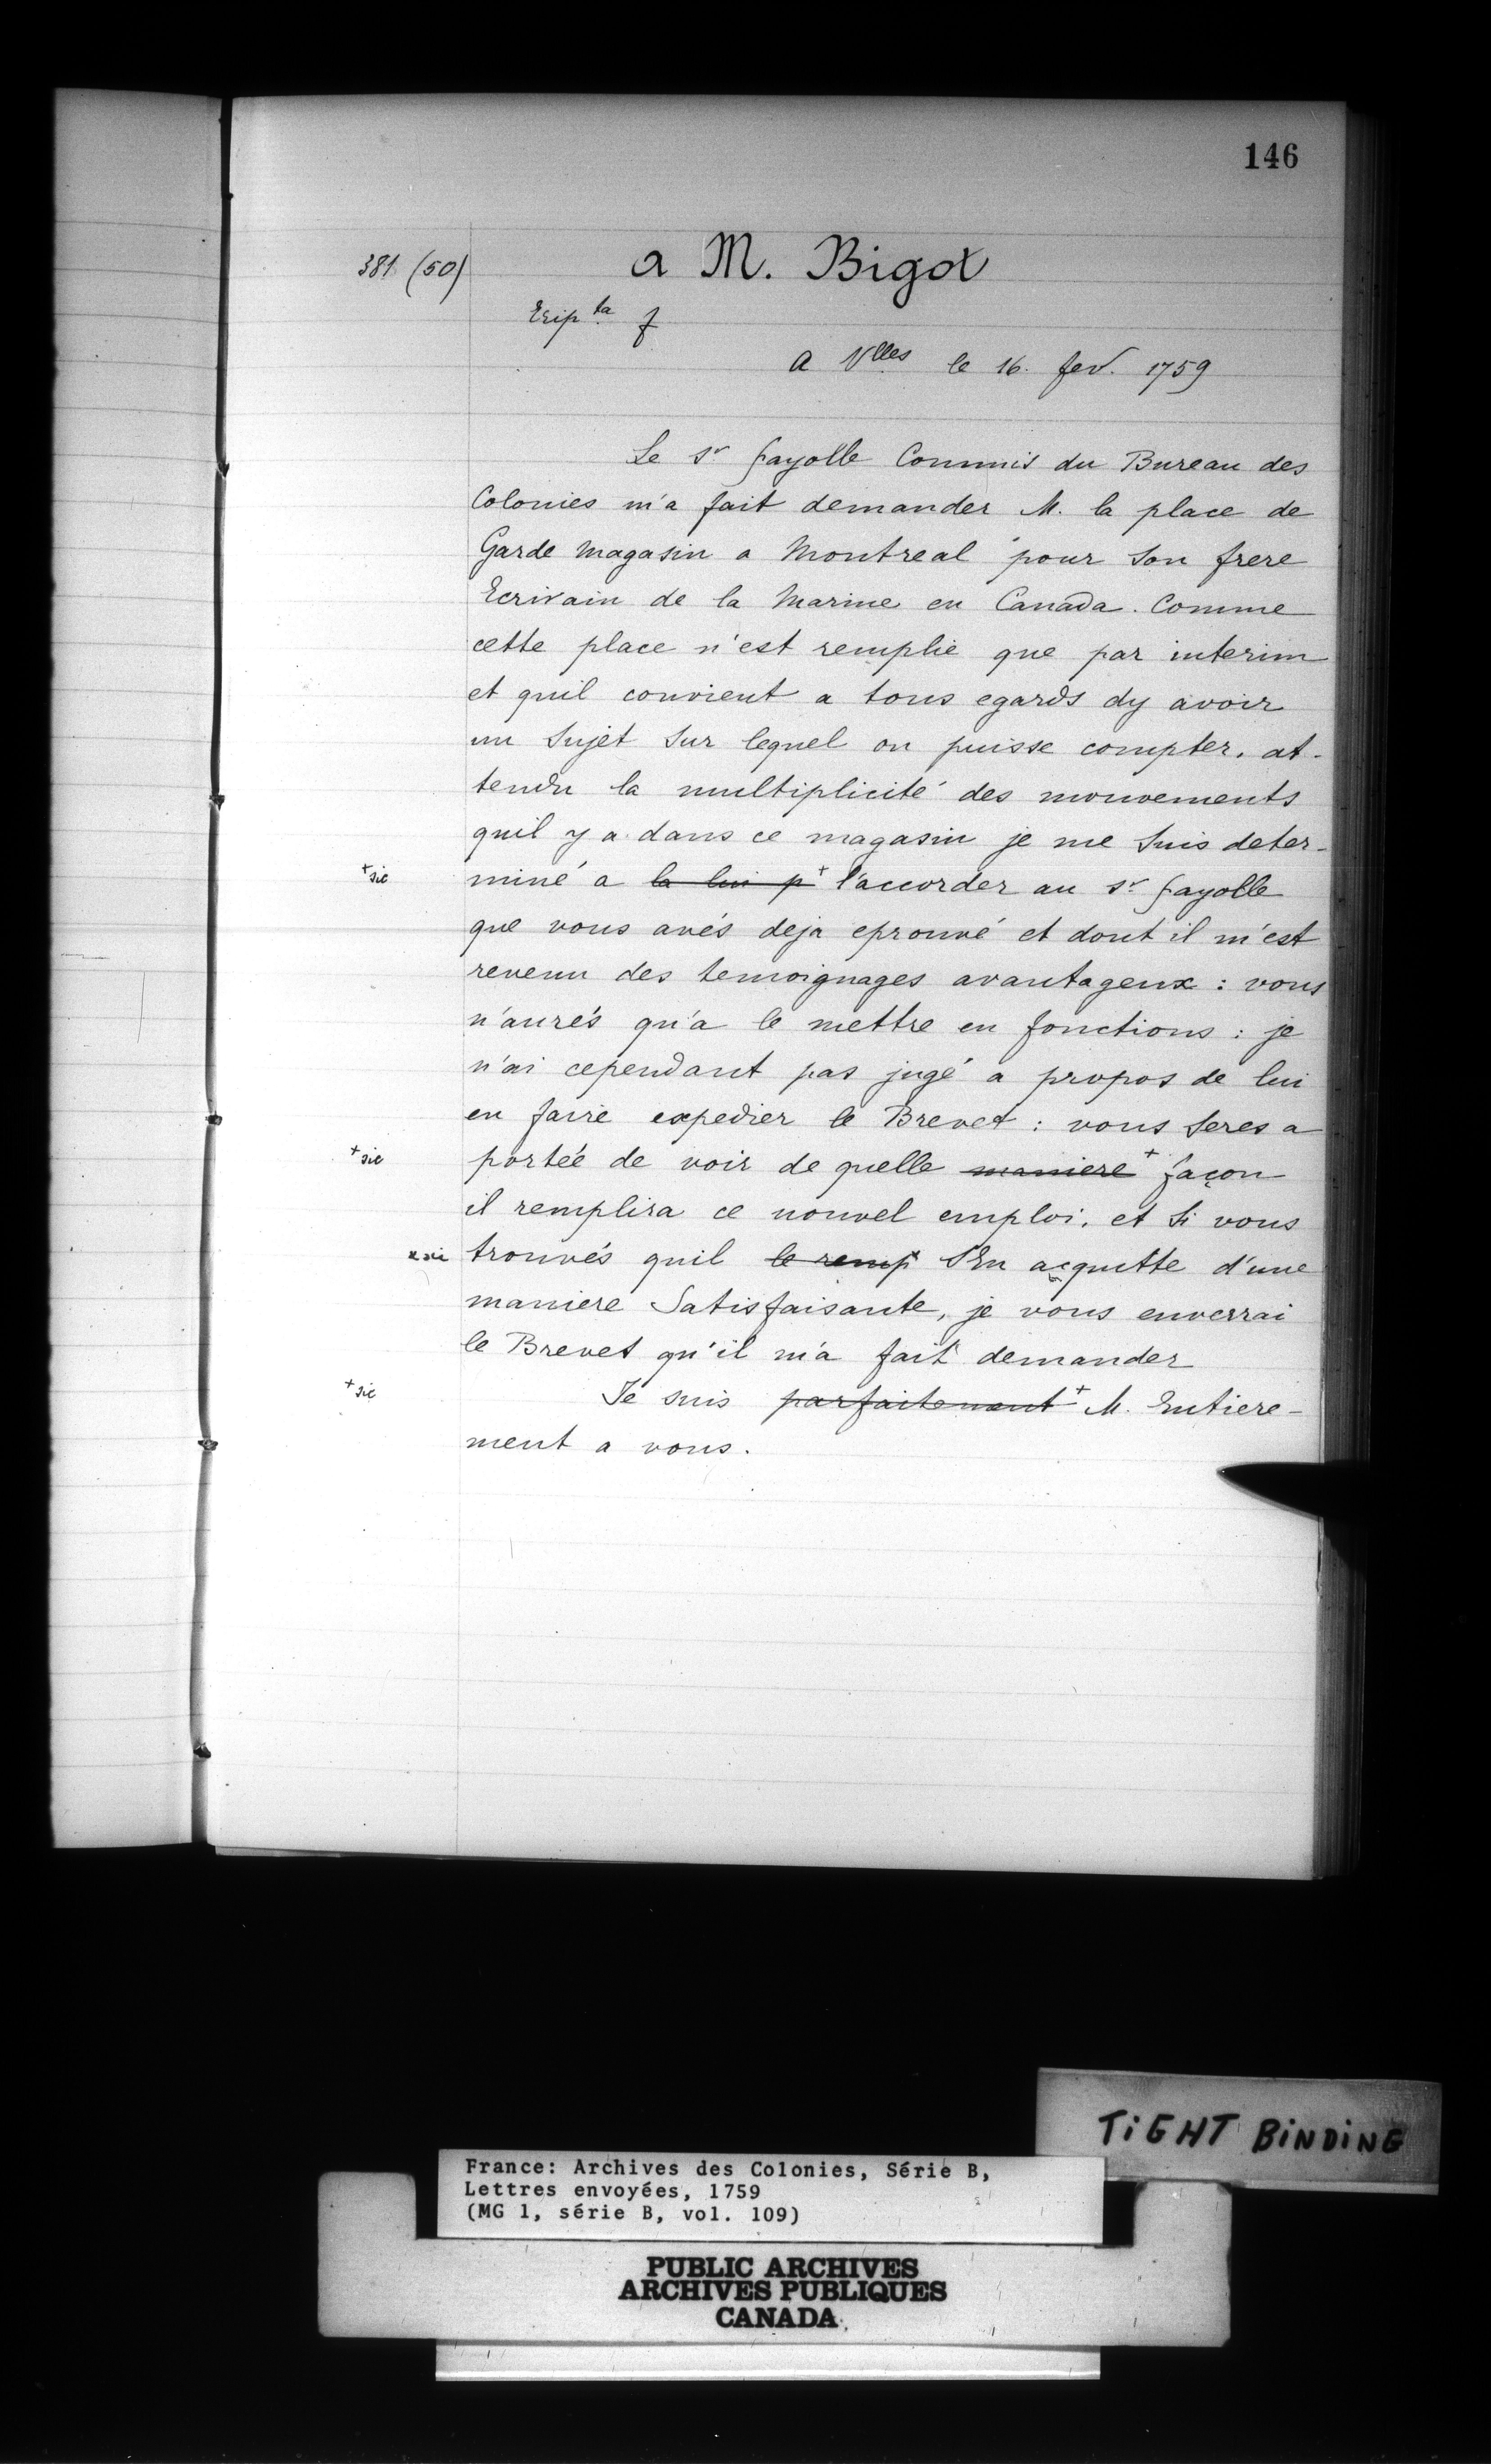 146
381 (50)
a M. Bigot
Trip ta f
a Vlles le 16. fev. 1759
Le Sr fayolle Commis du Bureau des
Colonies m'a fait demander M. la place de
Garde Magasin a Montreal pour Son frere
Ecrivain de la Marine en Canada. Comme
cette place n'est remplie que par interim
et quil convient a tous egards dy avoir
un Sujet Sur lequel on puisse compter, at-
tendu la multiplicité des mouvements
quil y a dans ce magasin je me Suis deter-
+ sic
miné a la lui p + l'accorder au Sr fayolle
que vous avés deja eprouvé et dont il m'est
revenu des temoignages avantageux : vous
n'aurés qu'a le mettre en fonctions : je
n'ai cependant pas jugé a propos de lui
en faire expedier le Brevet : vous Seres a
+ sic
portée de voir de quelle maniere + façon
il remplira ce nouvel emploi, et Si vous
x sic
trouvés quil le remp x S'En acquitte d'une
maniere Satisfaisante, je vous enverrai
le Brevet qu'il m'a fait demander
+ sic
Je suis parfaitement + M. Entiere-
ment a vous.
TIGHT BINDING
France: Archives des Colonies, Série B,
Lettres envoyées, 1759
(MG 1, série B, vol. 109)
PUBLIC ARCHIVES
ARCHIVES PUBLIQUES
CANADA